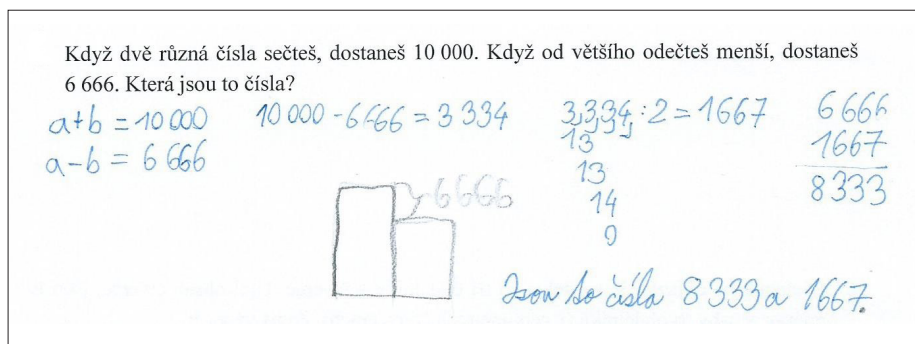 Když dvě různá čísla sečteš, dostaneš 10 000. Když od většího odečteš menší, dostaneš
6 666. Která jsou to čísla?
a+b = 10 000
a-b = 6 666
10 000 - 6 666 = 3 334
3334 : 2 = 1667
13
13
14
0
6 666
1667
8 333
6666
Jsou to čísla 8 333 a 1667.